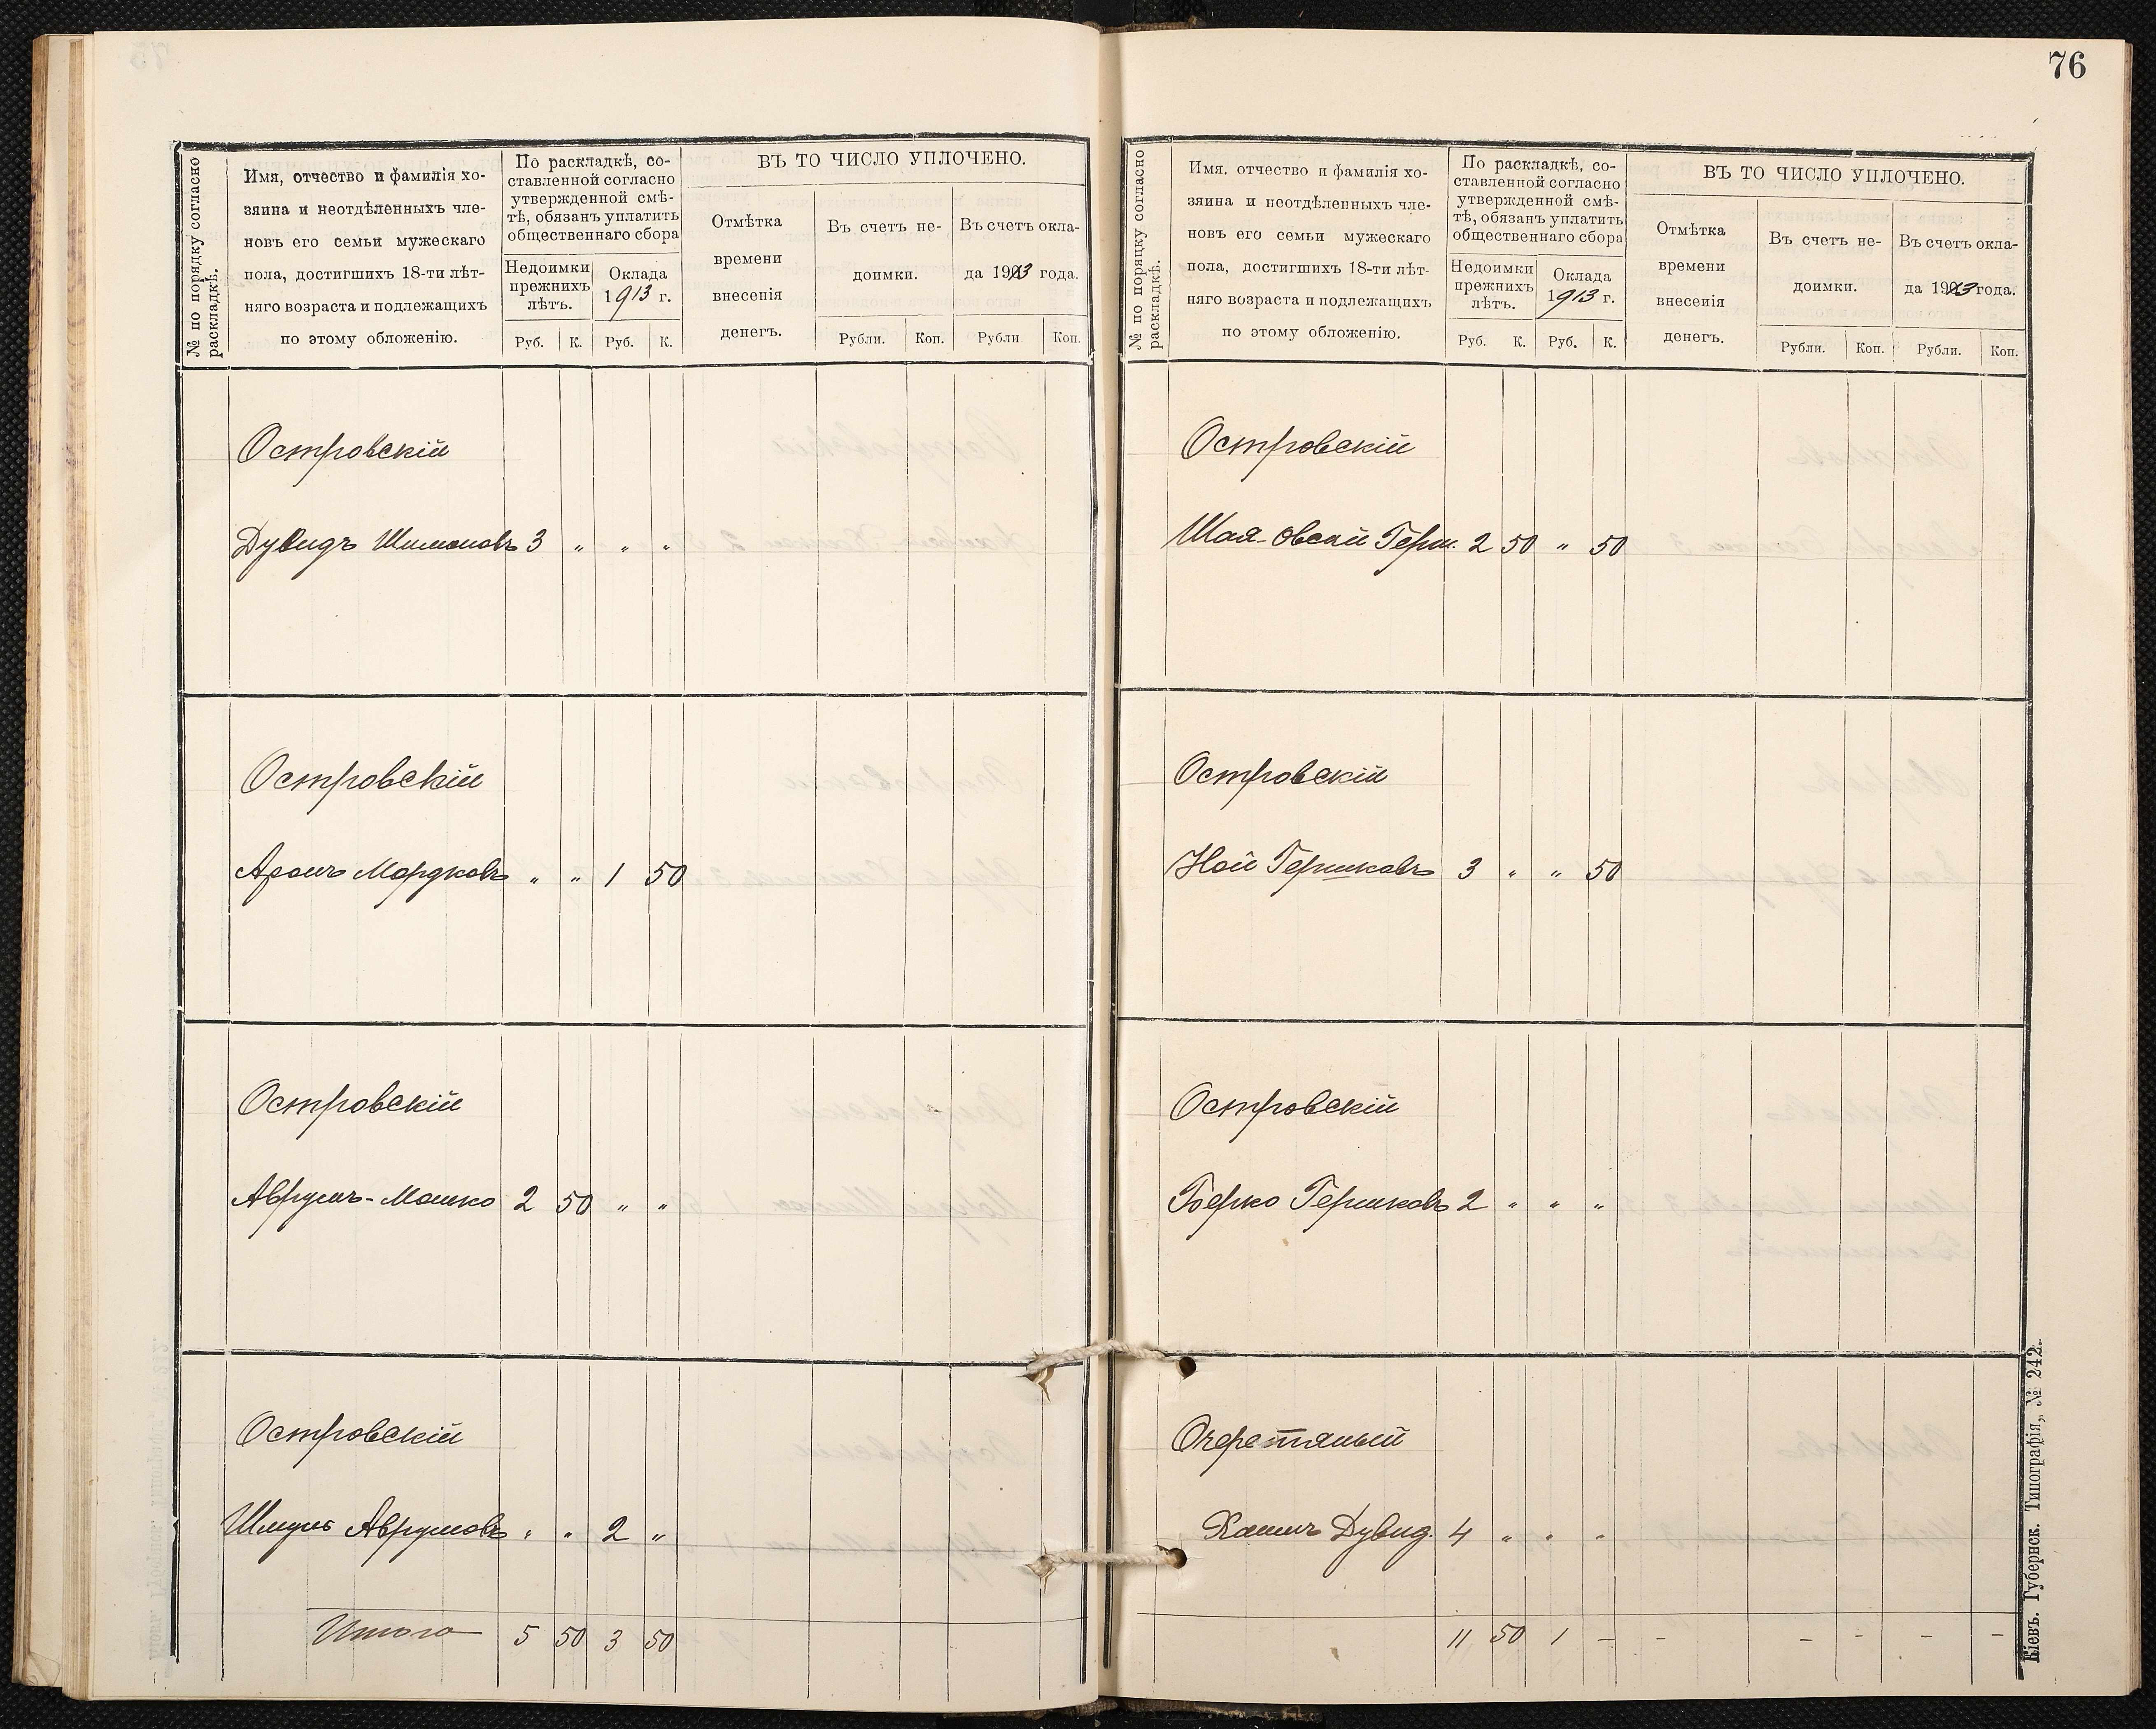 76
№ по порядку согласно
раскладкѣ.
Имя, отчество и фамилія хо-
зяина и неотдѣленныхъ чле-
новъ его семьи мужескаго
пола, достигшихъ 18-ти лѣт-
няго возраста и подлежащихъ
по этому обложенію.
По раскладкѣ, со-
ставленной согласно
утвержденной смѣ-
тѣ, обязанъ уплатить
общественнаго сбора
Недоимки
прежнихъ
лѣтъ.
Оклада
1913 г.
Руб. К. Руб. К.
ВЪ ТО ЧИСЛО УПЛОЧЕНО.
Отмѣтка
времени
внесенія
денегъ.
Въ счетъ не-
доимки.
Въ счетъ окла-
да 1913 года.
Рубли. Коп. Рубли Коп.
Островскій
Дувидъ Шимоновъ 3 " " "
Островскій
Аронъ Мордковъ " " 1 50
Островскій
Аврумъ-Мошко 2 50 " "
Островскій
Шмуль Аврумовъ " " 2 "
Итого 5 50 3 50
№ по порядку согласно
раскладкѣ.
Имя, отчество и фамилія хо-
зяина и неотдѣленныхъ чле-
новъ его семьи мужескаго
пола, достигшихъ 18-ти лѣт-
няго возраста и подлежащихъ
по этому обложенію.
По раскладкѣ, со-
ставленной согласно
утвержденной смѣ-
тѣ, обязанъ уплатить
общественнаго сбора
Недоимки
прежнихъ
лѣтъ.
Оклада
1913 г.
Руб. К. Руб. К.
ВЪ ТО ЧИСЛО УПЛОЧЕНО.
Отмѣтка
времени
внесенія
денегъ.
Въ счетъ не-
доимки.
Въ счетъ окла-
да 1913 года.
Рубли. Коп. Рубли. Коп.
Островскій
Шая-Овсей Герш. 2 50 " 50
Островскій
Ной Гершковъ 3 " " 50
Островскій
Берко Гершковъ 2 " " "
Очеретяный
Хаимъ Дувид. 4 " " "
11 50 1 - - - - - -
Кіевъ. Губернск. Типографія, № 242.